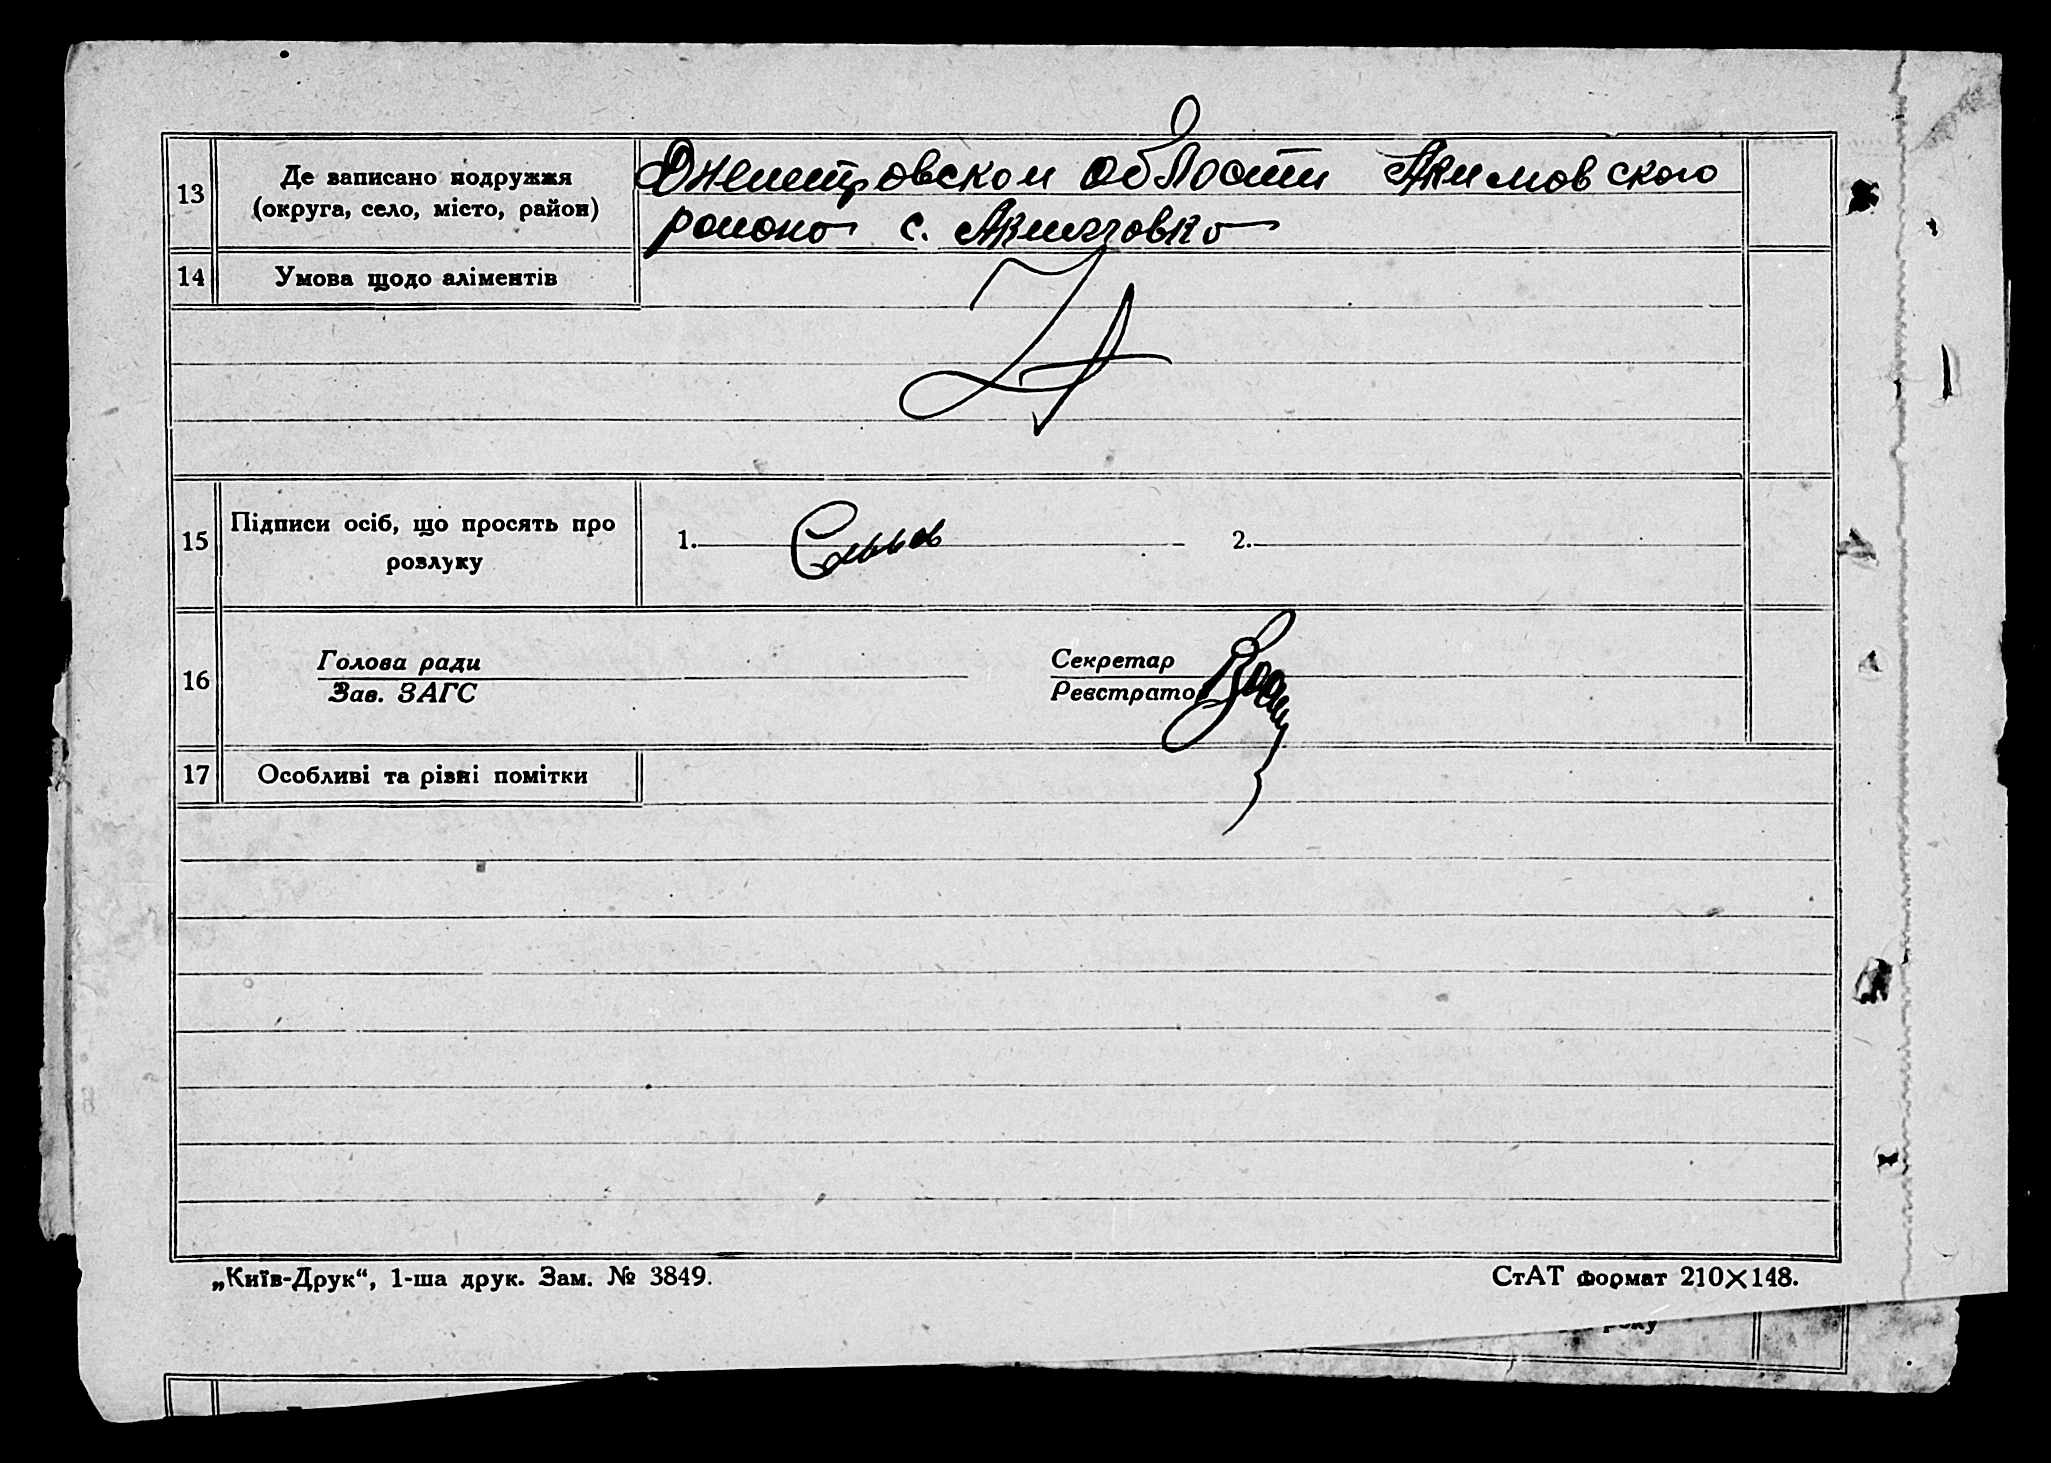 13
Де записано подружжя
(округа, село, місто, район)
Днепетровской области Акимовского
района с. Акимовка
14
Умова щодо аліментів
15
Підписи осіб, що просять про
розлуку
1.
2.
16
Голова ради
Зав. ЗАГС
Секретар
Реєстрато
17
Особливі та різні помітки
„Київ-Друк“, 1-ша друк. Зам. № 3849.
СтАТ формат 210×148.
року